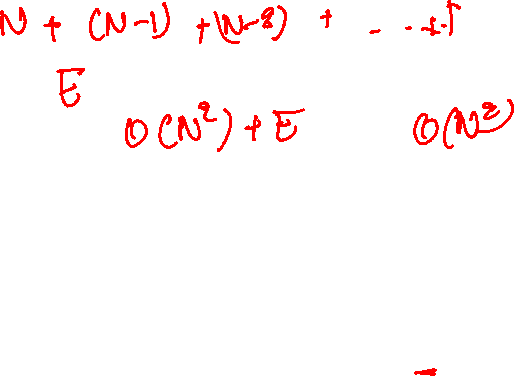 N + (N-1) + (N-2) + . . . +1
E
O(N²) + E O(N²)